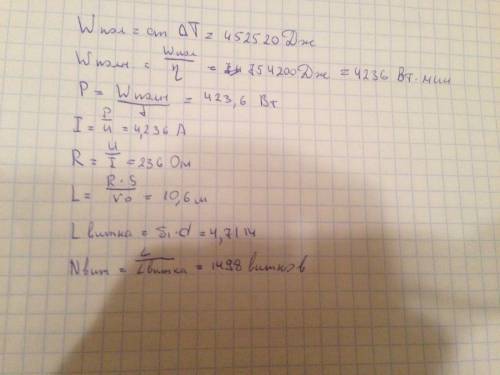 Wпол = cm ΔT = 452520 Дж
Wполн = Wпол/η = 754200 Дж = 4236 Вт·мин
P = Wполн/t = 423,6 Вт
I = P/u = 4,236 А
R = u/I = 236 Ом
L = R·S/ro = 10,6 м
L витка = π·d = 4,7114
Nвит = L/Lвитка = 1498 витков